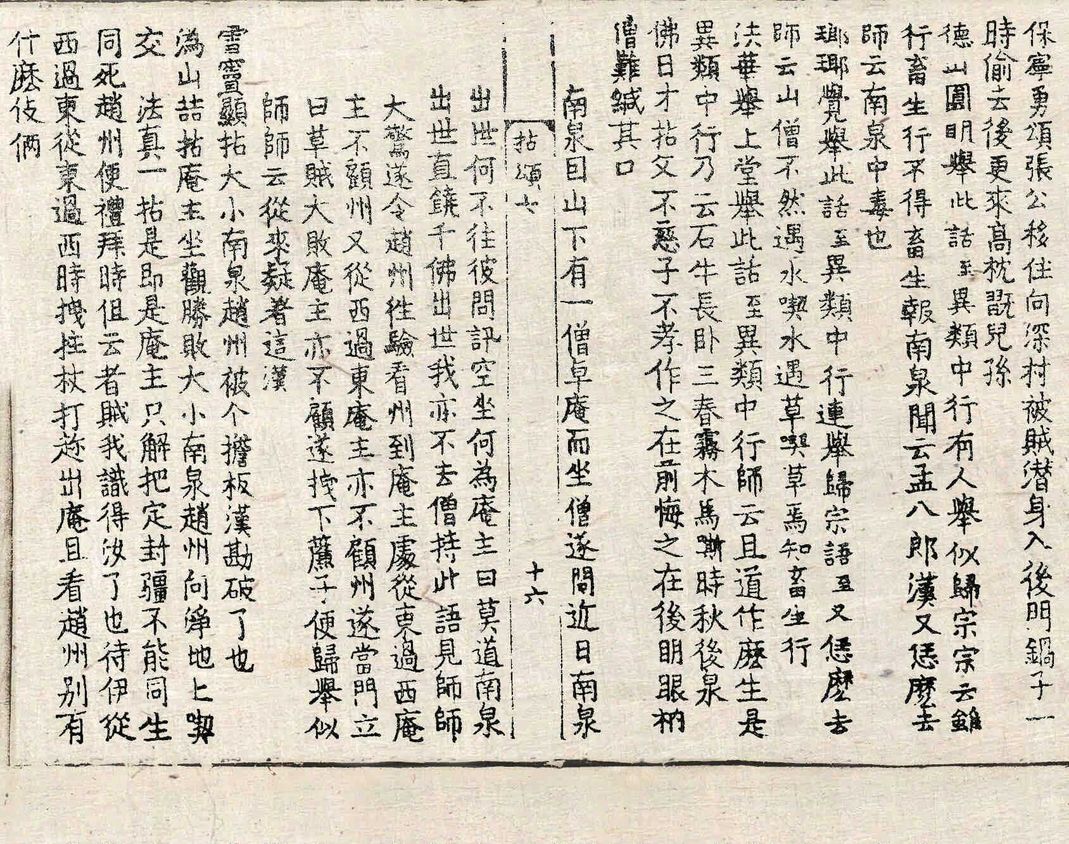 保寧勇頌張公移住向深村被賊潛身入後門鍋子一
時偷去後更來高枕翫兒孫
德山圓明舉此話至異類中行有人舉似歸宗宗云雖
行畜生行不得畜生報南泉聞云孟八郎漢又恁麽去
師云南泉中毒也
瑯瑘覺舉此話至異類中行連舉歸宗語至又恁麽去
師云山僧不然遇水喫水遇草喫草焉知畜生行
法華舉上堂舉此話至異類中行師云且道作麽生是
異類中行乃云石牛長卧三春霧木馬嘶時秋後泉
佛日才拈父不慈子不孝作之在前悔之在後明眼衲
僧難緘其口
南泉因山下有一僧卓庵而坐僧遂問近日南泉
拈頌七
十六
出世何不往彼問訊空坐何為庵主曰莫道南泉
出世直饒千佛出世我亦不去僧持此語見師師
大驚遂令趙州徃驗看州到庵主處從東過西庵
主不顧州又從西過東庵主亦不顧州遂當門立
曰草賊大敗庵主亦不顧遂拽下簾子便歸舉似
師師云從來疑著這漢
雪竇顯拈大小南泉趙州被个擔板漢勘破了也
溈山喆拈庵主坐觀勝敗大小南泉趙州向淨地上喫
交　法真一拈是即是庵主只解把定封疆不能同生
同死趙州便禮拜時但云者賊我識得汝了也待伊從
西過東從東過西時拽拄杖打趂出庵且看趙州別有
什麽伎倆